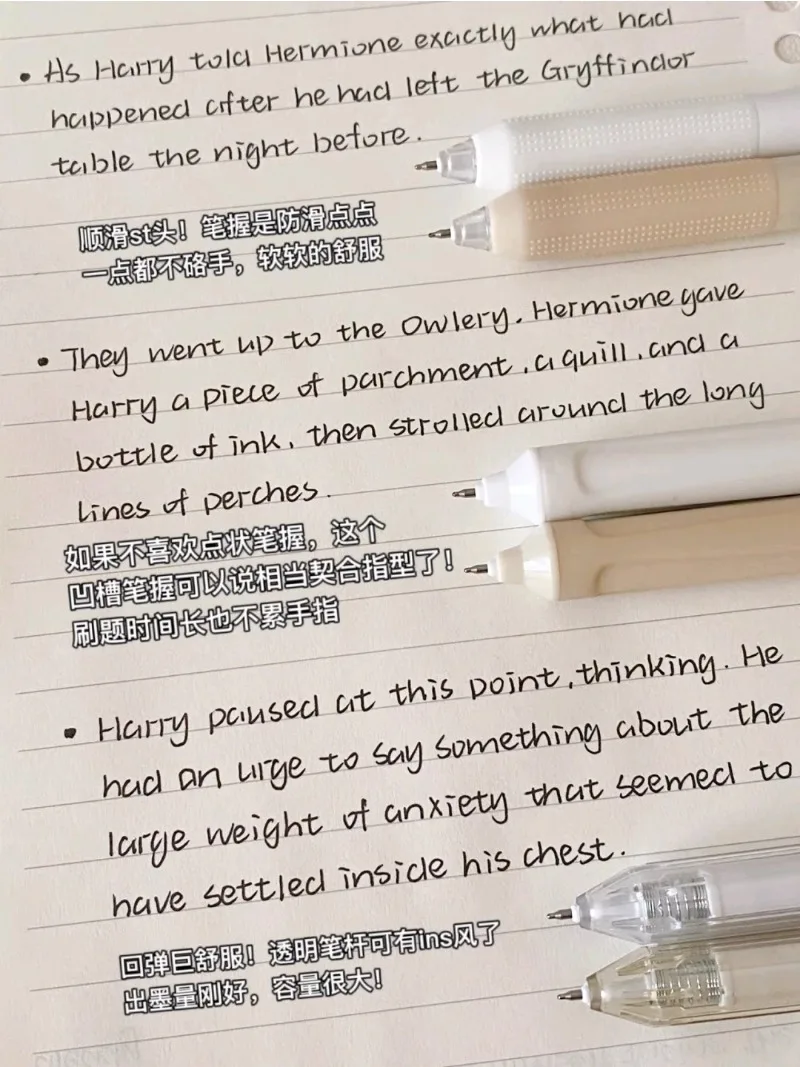 • As Harry told Hermione exactly what had
happened after he had left the Gryffindor
table the night before.
顺滑st头！笔握是防滑点点
一点都不硌手，软软的舒服
• They went up to the Owlery. Hermione gave
Harry a piece of parchment, a quill, and a
bottle of ink, then strolled around the long
lines of perches.
如果不喜欢点状笔握，这个
凹槽笔握可以说相当契合指型了！
刷题时间长也不累手指
• Harry paused at this point, thinking. He
had an urge to say something about the
large weight of anxiety that seemed to
have settled inside his chest.
回弹巨舒服！透明笔杆可有ins风了
出墨量刚好，容量很大！